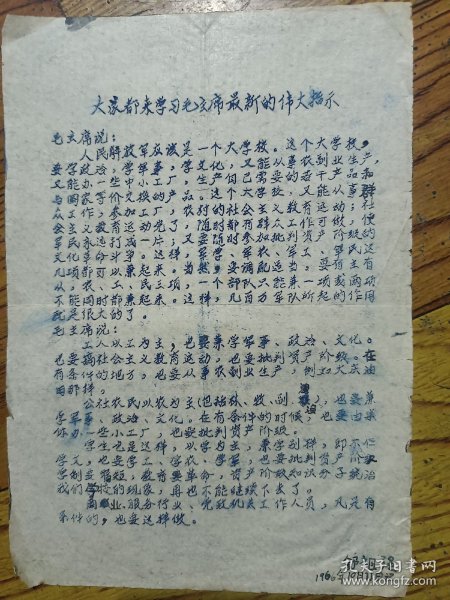 大家都来学习毛主席最新的伟大指示
毛主席说：
人民解放军应该是一个大学校。这个大学校，
要学政治，学军事，学文化，又能从事农副业生产，
又能办一些中小工厂，生产自己需要的若干产品和
与国家等价交换的产品。这个大学校，又能从事群
众工作，参加工厂，农村的社会主义教育运动；社
会主义教育运动完了，随时都有群众工作可做，使
军民永远打成一片；又要随时参加批判资产阶级的
文化革命斗争。这样，军学、军农、军工、军民这
几项都可以兼起来。当然，要调配适当，要有主有
从，农、工、民三项，一个部队只能兼一项或两项
不能同时都兼起来。这样，几百万军队所起的作用
就是很大的了。
毛主席说：
工人以工为主，也要兼学军事、政治、文化。
也要搞社会主义教育运动，也要批判资产阶级。在
有条件的地方，也要从事农副业生产，例如大庆油
田那样。
公社农民以农为主（包括林、牧、副、渔），也要兼
学军事、政治、文化。在有条件的时候，也要由集
体办一些小工厂，也要批判资产阶级。
学生也是这样，以学为主，兼学别样，即不但
学文，也要学工、学农、学军，也要批判资产阶级
学制要缩短，教育要革命，资产阶级知识分子统治
我们学校的现象，再也不能继续下去了。
商业、服务行业、党政机关工作人员，凡是有
条件的，也要这样做。
1966年
孔夫子旧书网
kongfz.com